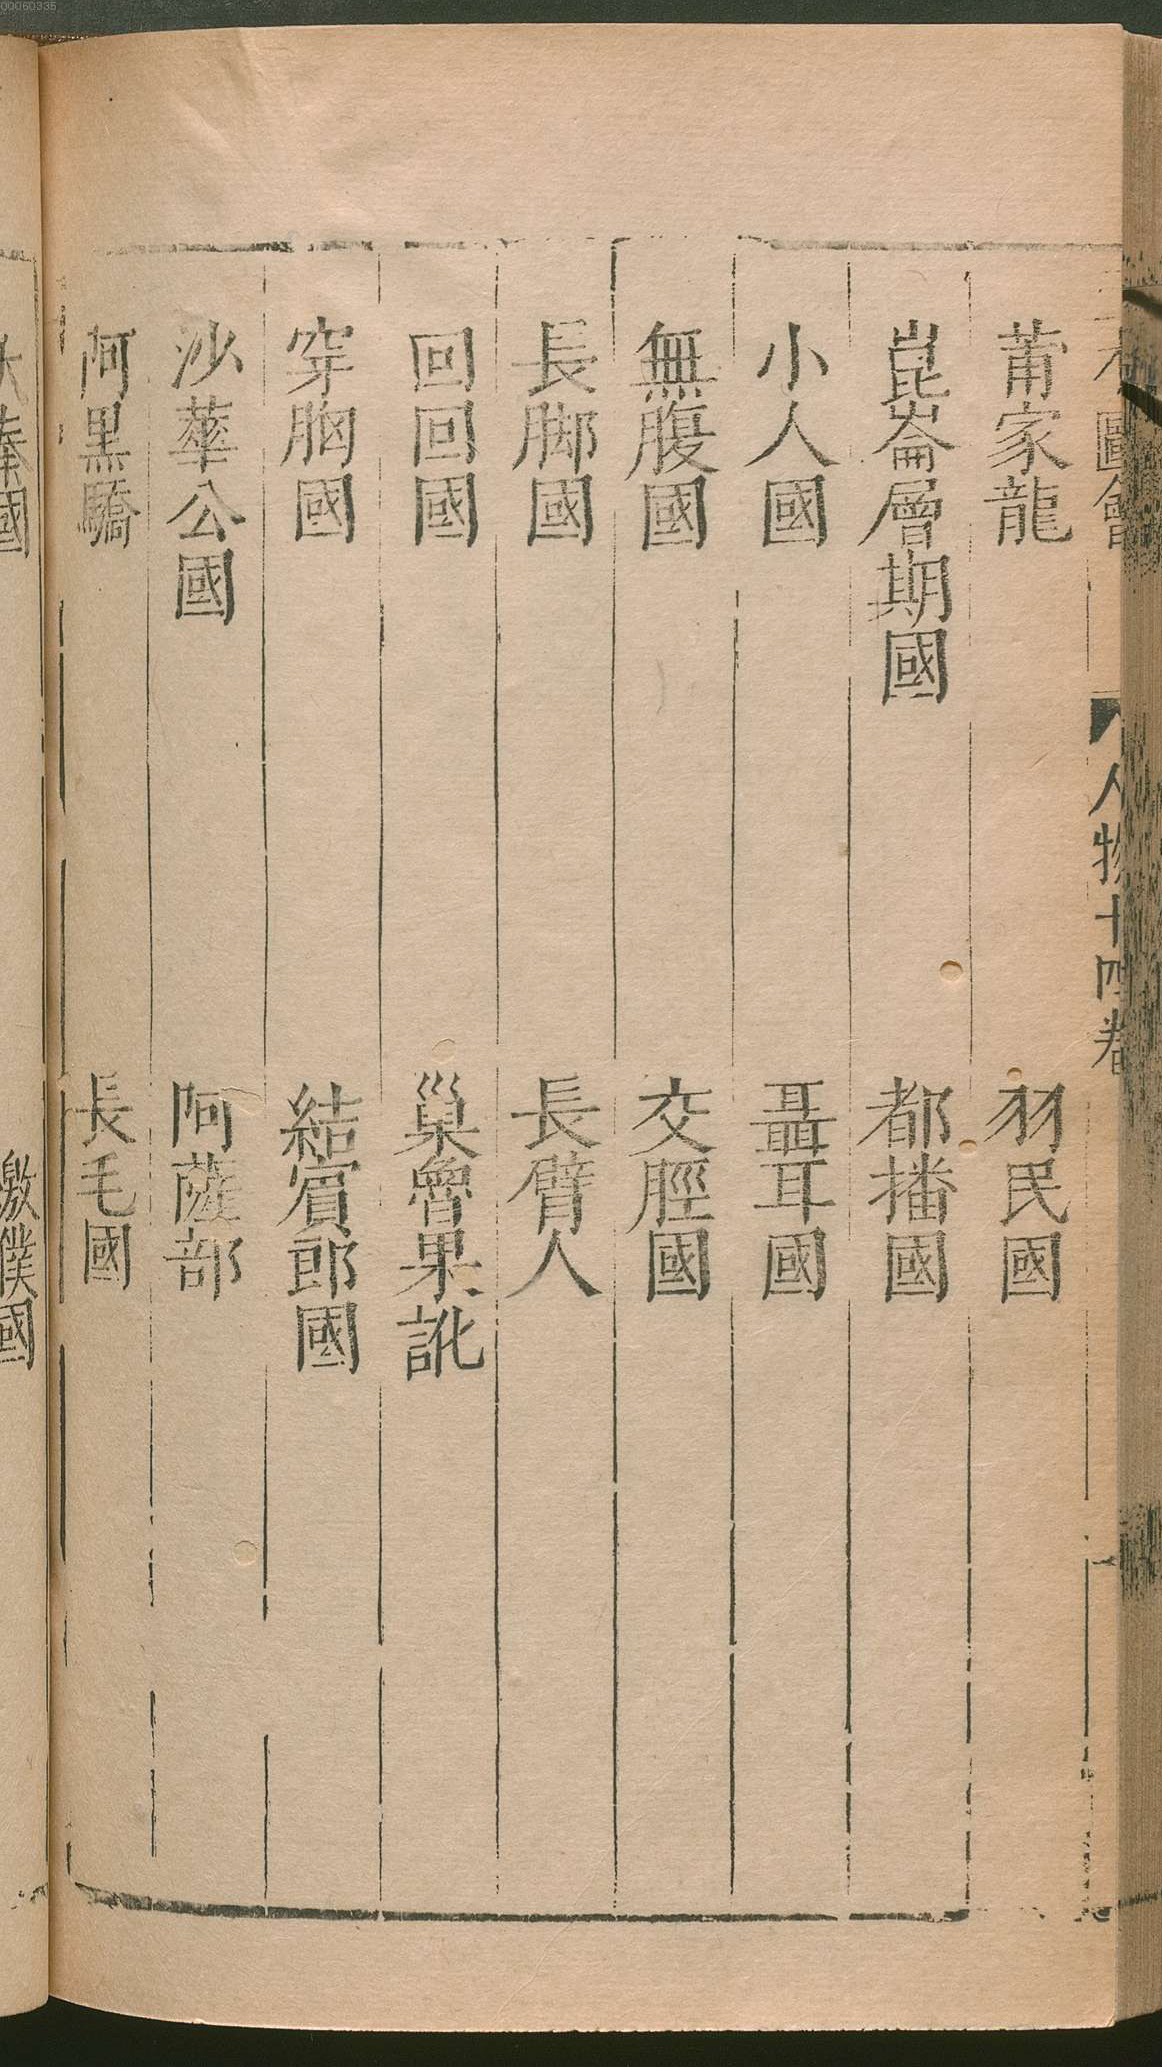 00060335
圖會
人物十四卷
莆家龍 羽民國
崑崙層期國 都播國
小人國 聶耳國
無腹國 交脛國
長脚國 長臂人
回回國 巢魯果訛
穿胸國 結賓郎國
沙華公國 阿薩部
阿黑驕 長毛國
國 僕國